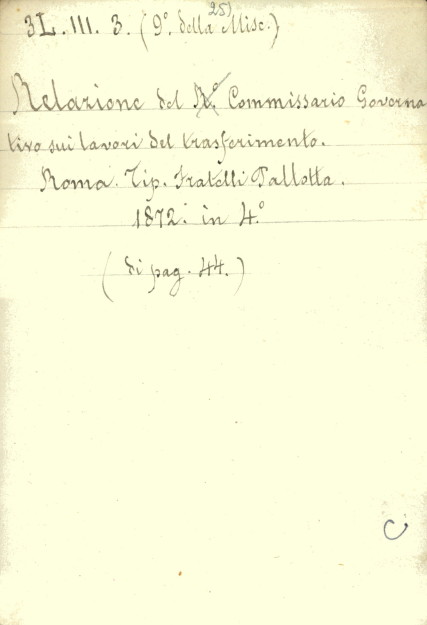 25)
3L. III. 3. (9º. della Misc.)
Relazione del R.º Commissario Governa
tivo sui lavori del trasferimento.
Roma. Tip. Fratelli Pallotta.
1872. in 4.º
(di pag. 44.)
C